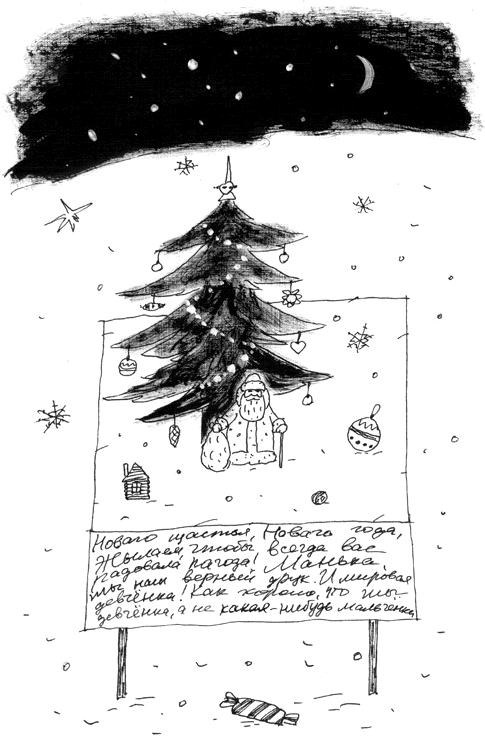 Новаго щастья, Новаго года,
Жылаем, чтобы всегда вас
радовала пагода! Манька,
ты наш верный друк. И мировая
девчёнка! Как хорошо, что ты-
девчёнка, а не какая-нибудь мальчёнка